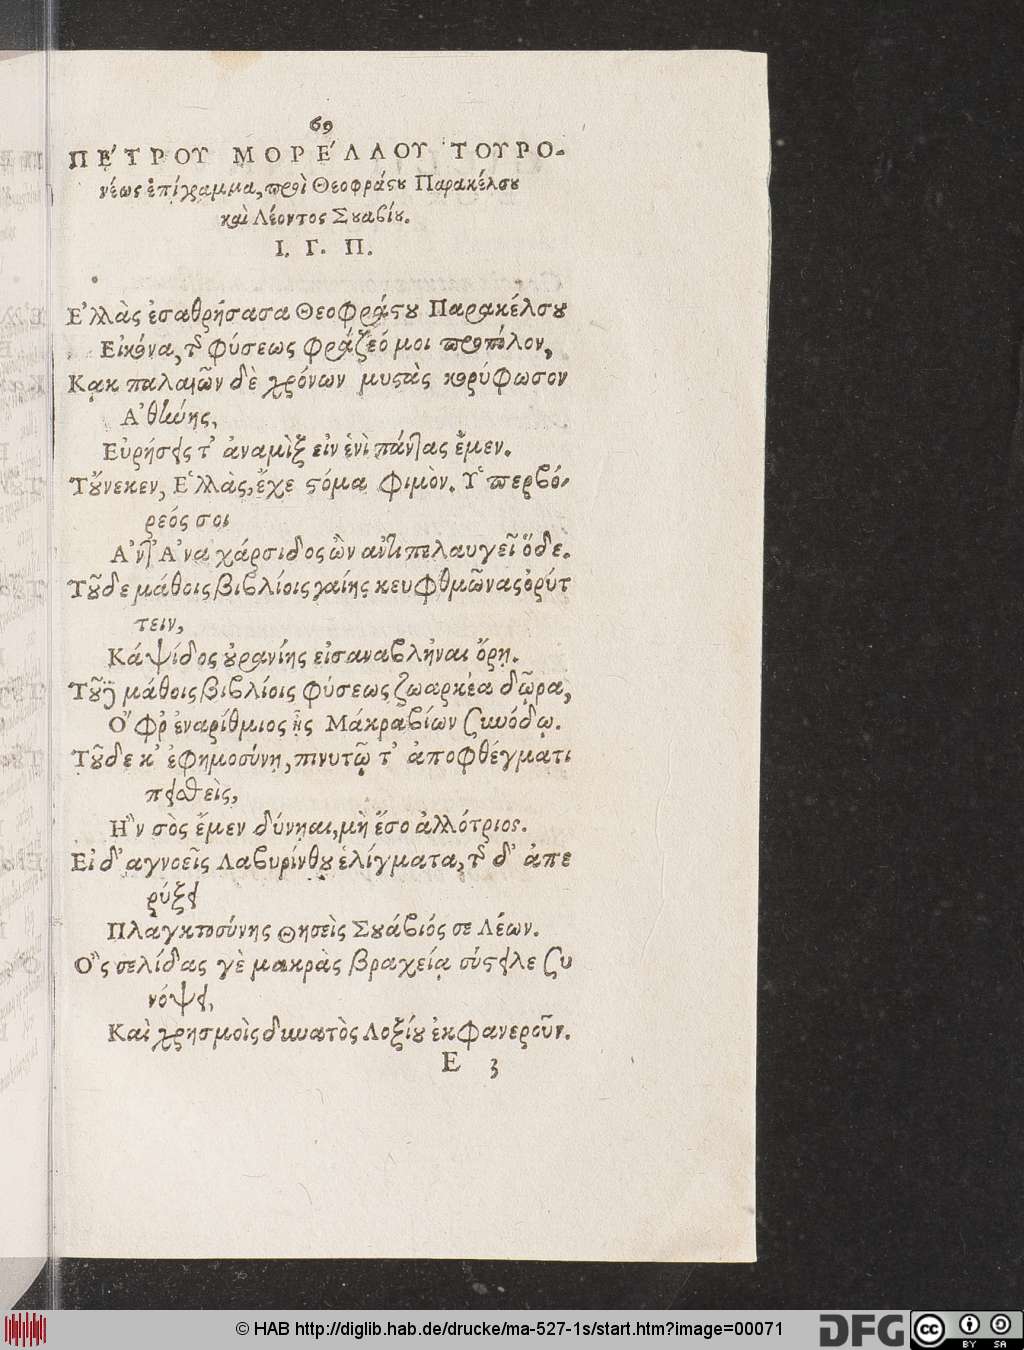 69
ΠΕ´ΤΡΟΥ ΜΟΡΕ´ΛΛΟΥ ΤΟΥΡΟ-
νέως ἐπίγραμμα, περὶ Θεοφράστου Παρακέλσου
καὶ Λέοντος Σουαβίου.
Ι. Γ. Π.
Ε᾿λλὰς ἐσαθρήσασα Θεοφράστου Παρακέλσου
Εἰκόνα, τῆς φύσεως φράζεό μοι πρόπολον,
Κᾳκ παλαιῶν δὲ χρόνων μυστὰς κορύφωσον
Α᾿θήνης,
Εὑρήσεις τ᾿ ἀναμὶξ εἰν ἑνὶ πάντας ἔμεν.
Τοὔνεκεν, Ε῾λλὰς, ἔχε στόμα φιμὸν. Υ῾περβό-
ρεός σοι
Α᾿ντ᾿ Α᾿ναχάρσιδος ὢν ἀντιπελαυγεῖ ὅδε.
Τοῦδε μάθοις βιβλίοις γαίης κευφθμῶνας ὀρύτ
τειν,
Κάψίδος οὐρανίης εἰσαναβλῆναι ὄρη.
μάθοις βιβλίοις φύσεως ζωαρκέα δῶρα,
Ο῎φρ᾿ ἐναρίθμιος ᾖς Μάκραβίων ζυνόδῳ.
Τοῦδε κ᾿ ἐφημοσύνη, πινυτῷ τ᾿ ἀποφθέγματι
πεισθεὶς,
Η῍ν σὸς ἔμεν δύνηαι, μὴ ἔσο ἀλλότριος.
Εἰ δ᾿ αγνοεῖς Λαβυρίνθου ἑλίγματα, τῆς δ᾿ ἀπε
ρύξει
Πλαγκτοσύνης Θησεὶς Σουάβιός σε Λέων.
Ο῍ς σελίδας γὲ μακρὰς βραχείᾳ σύστειλε ζυ
νόψει,
Καὶ χρησμοὶς δυνατὸς Λοξίου ἐκφανεροῦν.
E 3
© HAB http://diglib.hab.de/drucke/ma-527-1s/start.htm?image=00071
DFG
cc BY SA